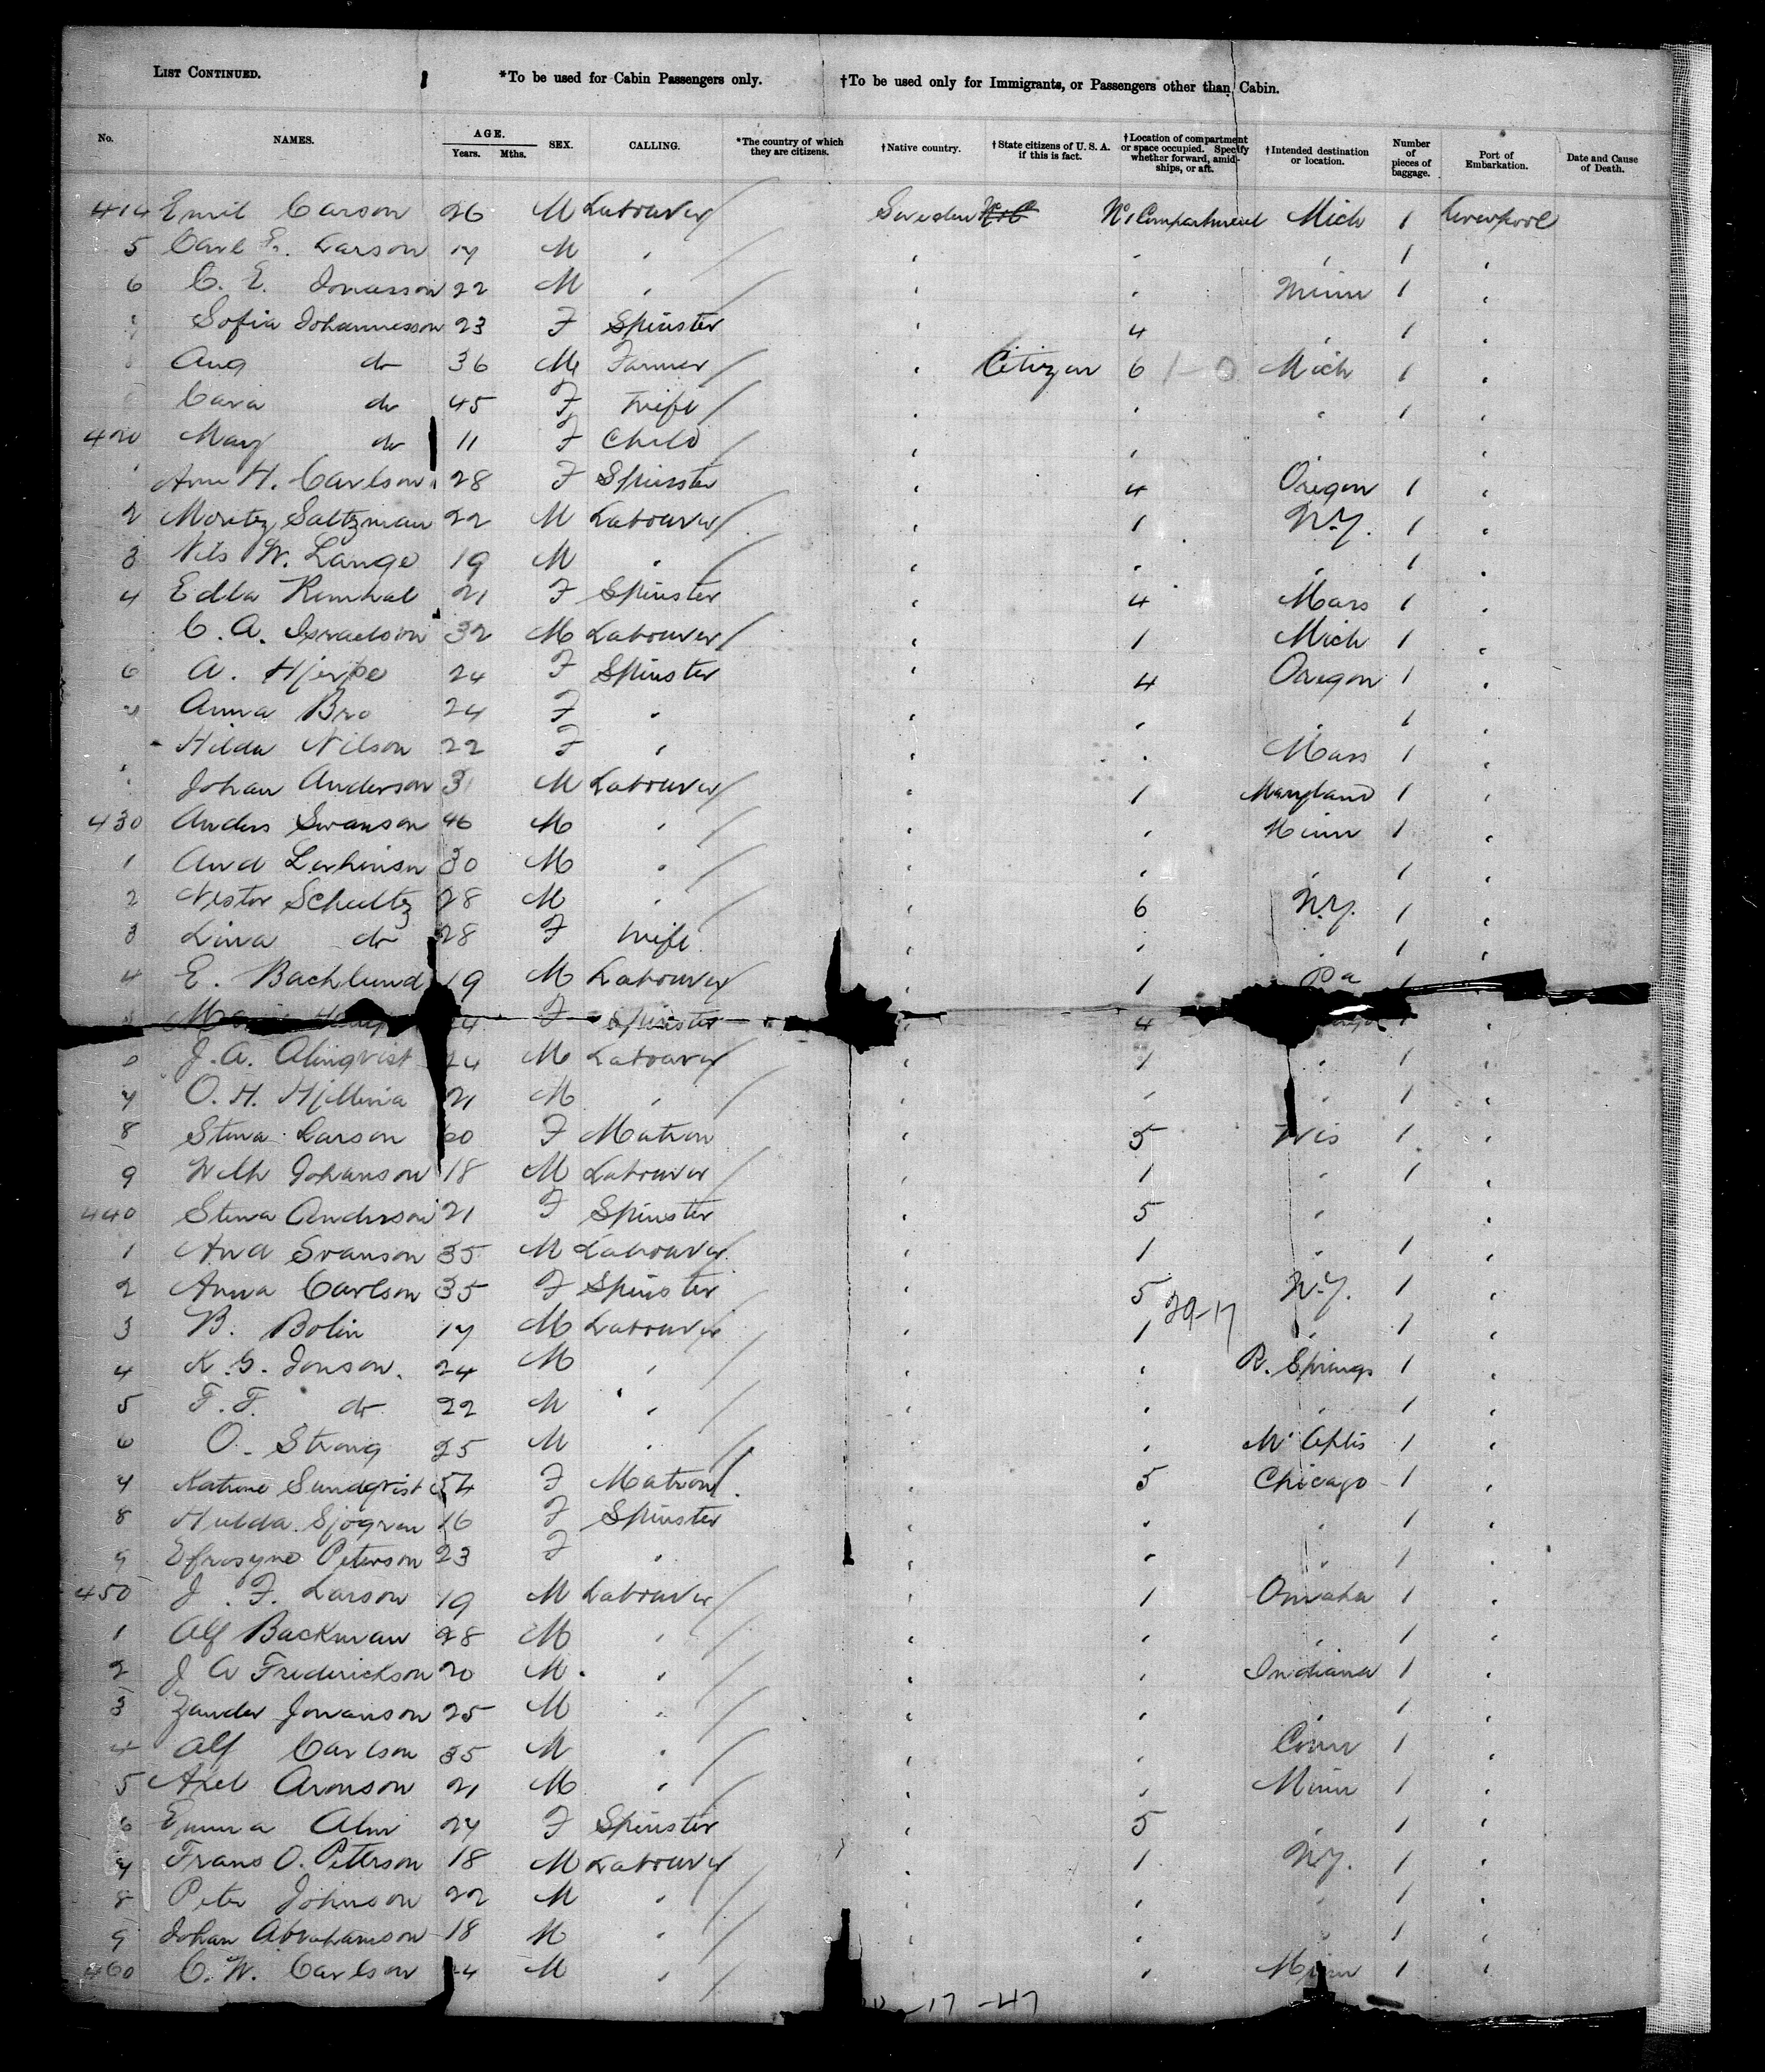 LIST CONTINUED. *To be used for Cabin Passengers only. †To be used only for Immigrants, or Passengers other than Cabin.
No. NAMES. AGE. Years. Mths. SEX. CALLING. *The country of which they are citizens. †Native country. †State citizens of U. S. A. if this is fact. †Location of compartment or space occupied. Specify whether forward, amidships, or aft. †Intended destination or location. Number of pieces of baggage. Port of Embarkation. Date and Cause of Death.
414 Emil Carson 26 M Labourer Sweden No 1 Compartment Mich 1 Liverpool
5 Carl F. Larson 17 M " " " " 1 "
6 C. E. Jonasson 22 M " " " Minn 1 "
Sofia Johannesson 23 F Spinster " 4 " 1 "
Aug do 36 M Farmer " Citizen 6 1-0 Mich 1 "
Cara do 45 F Wife " " " 1 "
420 Mary do 11 F Child " " "
Ann H. Carlson 28 F Spinster " 4 Oregon 1 "
2 Moritz Saltzman 22 M Labourer " 1 N.Y. 1 "
3 Nils W. Lange 19 M " " " " 1 "
4 Edla 21 F Spinster " 4 Mass 1 "
C. A. Israelson 32 M Labourer " 1 Mich 1 "
6 A. Hjerpe 24 F Spinster " 4 Oregon 1 "
7 Anna Bro 24 F " " " " 1 "
Hilda Nilson 22 F " " " Mass 1 "
Johan Anderson 31 M Labourer " 1 Maryland 1 "
430 Anders Swanson 46 M " " " Minn 1 "
1 And 30 M " " " " 1 "
2 Nestor Schultz 28 M " " 6 N.Y. 1 "
3 Lina do 28 F Wife " " " 1 "
4 E. Bachlund 19 M Labourer " 1 Pa 1
F Spinster " 4 1 "
6 J. A. Almqvist 24 M Labourer " 1 " 1 "
7 O. H. 21 M " " " " 1 "
8 Stina Larson 60 F Matron " 5 Wis 1 "
9 Johanson 18 M Labourer " 1 " 1 "
440 Stina Anderson 21 F Spinster " 5 " "
1 And Svanson 35 M Labourer " 1 " 1 "
2 Anna Carlson 35 F Spinster " 5 N.Y. 1 "
3 B. Bolin 17 M Labourer " 1 29-17 " 1 "
4 K. G. Jonson. 24 M " " " R. Springs 1 "
5 F. F. do 22 M " " " " 1 "
6 O. Strong 25 M " " " 1 "
7 Katrine Sundqvist 54 F Matron " 5 Chicago 1 "
8 Hulda Sjogren 16 F Spinster " " " 1 "
9 Efrosyne Peterson 23 F " " " " 1 "
450 J. F. Larson 19 M Labourer " 1 Omaha 1 "
1 Alf Backman 28 M " " " " 1 "
2 J A Frederickson 20 M " " " Indiana 1 "
3 Zander Jovanson 25 M " " " " 1 "
4 Alf Carlson 35 M " " " Conn 1 "
5 Axel Aronson 21 M " " " Minn 1 "
6 Emma Alm 27 F Spinster " 5 " 1 "
7 Frans O. Peterson 18 M Labourer " 1 N.Y. 1 "
8 Peter Johnson 22 M " " " " 1 "
9 Johan Abrahamson 18 M " " " " 1 "
460 C. W. Carlson 24 M " " Minn 1 "
-17 -47